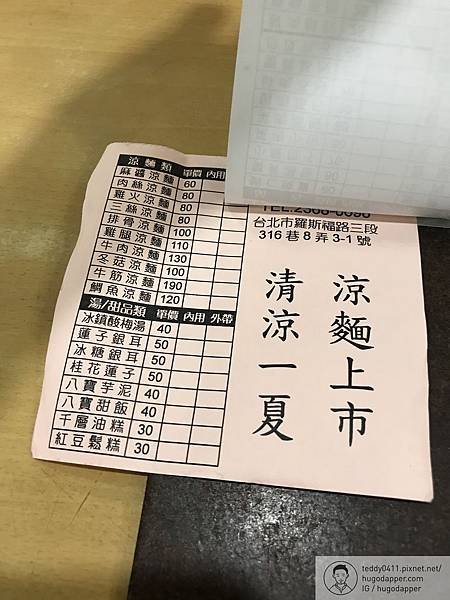 涼麵類 單價 內用
麻醬涼麵 60
肉絲涼麵 80
雞火涼麵 80
三絲涼麵 80
排骨涼麵 100
雞腿涼麵 110
牛肉涼麵 130
冬菇涼麵 100
牛筋涼麵 190
鯛魚涼麵 120
湯/甜品類 單價 內用 外帶
冰鎮酸梅湯 40
蓮子銀耳 50
冰糖銀耳 50
桂花蓮子 50
八寶芋泥 40
八寶甜飯 40
千層油糕 30
紅豆鬆糕 30
台北市羅斯福路三段
316 巷 8 弄 3-1 號
涼麵上市
清涼一夏
teddy0411.pixnet.net/
hugodapper.com
IG / hugodapper